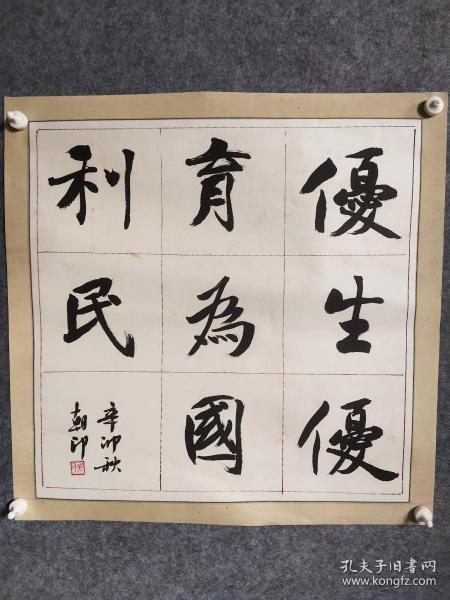 優生優
育為國
利民
辛卯秋
朝印
孔夫子旧书网
www.kongfz.com